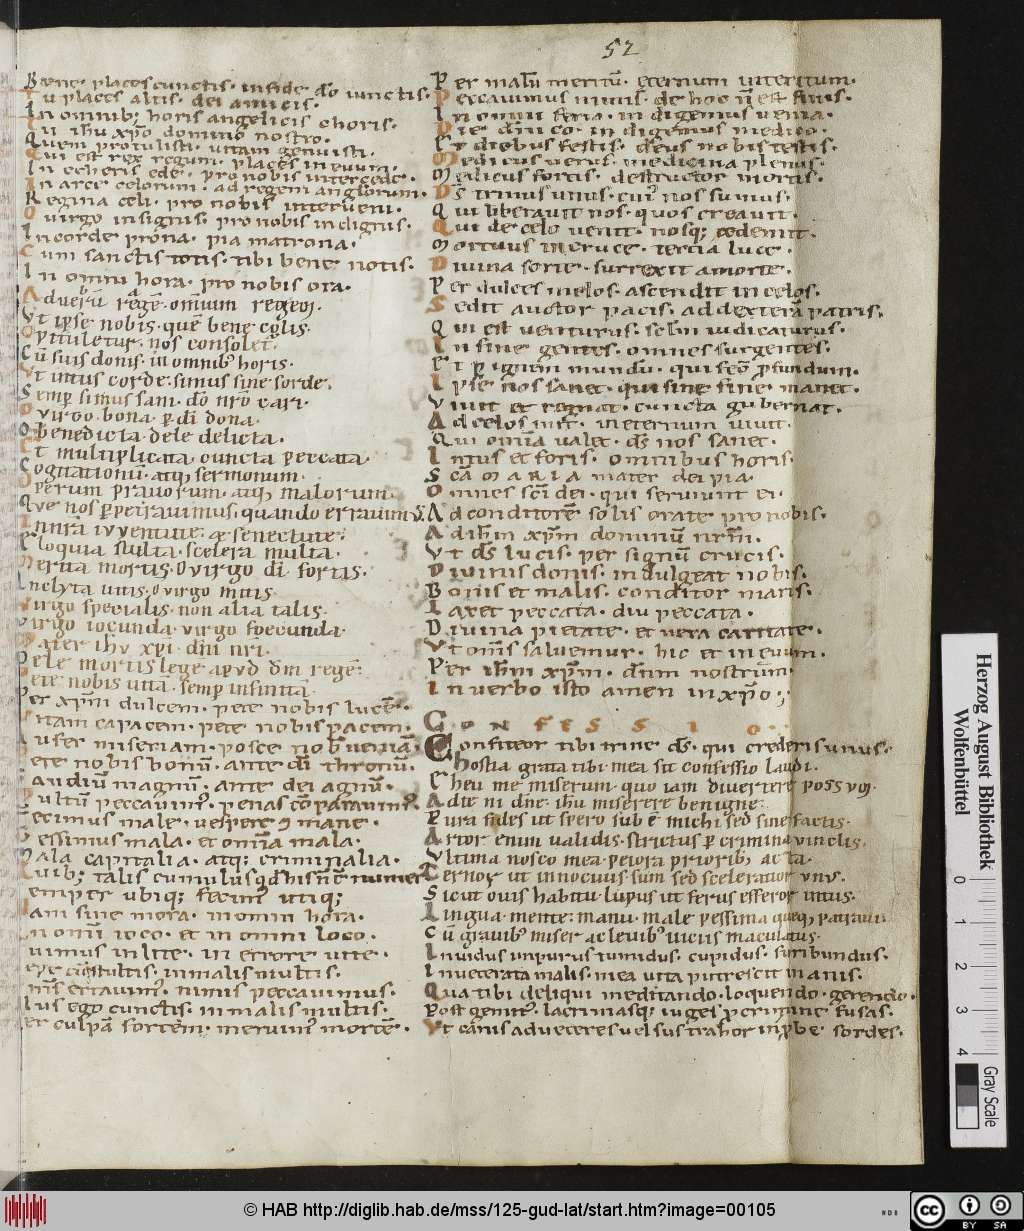 52
Bene places cunctis. in fide dō iunctis.
Tu places altis. dei amicis.
In omnibꝫ horis angelicis choris.
ihū xp̄o domino nostro.
Quem protulisti. uitam genuisti.
Qui est rex regum. places in euum.
pro nobis intercede.
In arce celorum. ad regem anglorum.
Regina celi. pro nobis interueni.
O uirgo insignis. pro nobis indignis.
In corde prona. pia matrona.
Cum sanctis totis. tibi bene notis.
In omni hora. pro nobis ora.
Ut ipse nobis. quē bene colis.
Opituletur. nos consolet̄.
Cū suis donis. in omnibꝰ horis.
Ut intus corde. simus sine sorde.
Semp̄ simus sani. dō nr̄o cari.
O virgo bona. p̄ di dona.
O benedicta. dele delicta.
Et multiplicata. cuncta peccata.
Cogitationū. atqꝫ sermonum.
Operum prauorum. atqꝫ malorum.
Que nos ꝑpetrauimus. quando errauim⁹.
In nr̄a iuuentute. & senectute.
Eloquia stulta. scelera multa.
Merita mortis. O virgo di fortis.
Inclyta uitis. O virgo mitis.
Virgo specialis. non alia talis.
Virgo iocunda. virgo foecunda.
Mater ihū xp̄i. dn̄i nr̄i.
Dele mortis lege. apvd dm̄ regē.
Pete nobis uitā. semp̄ infinitā.
Per xp̄m dulcem. pete nobis lucē.
Vitam capacem. pete nobis pacem.
Aufer miseriam. posce nob̄ ueniā.
Pete nobis bonū. ante di thronū.
Gaudiū magnū. Ante dei agnū.
Multū peccauimꝰ. penas cō parauimꝰ.
Fecimus male. uespere ꝯ mane.
Pessimus mala. et omīa mala.
Mala capitalia. atqꝫ criminalia.
Quibꝫ talis cumulus qd̄ his nc̄ē numer
Semper ubiqꝫ fecimꝰ utiqꝫ
Iam sine mora. in omni hora.
In omī ioco. et in omni loco.
uimus in lite. in errore uite.
stultis. in malis multis.
erraumꝰ. nimis peccauimus.
ego cunctis. in malis multis.
Per culpā sortem. meruimꝰ mortē.
Per malū meritū. eternum interitum.
Peccauimus nimis. de hoc n̄ est finis.
In omni feria. indigemus uenia.
Die dn̄ico. indigemus medico.
Et diebus festis. deus nobis testis.
Medicus uerus. medicina plenus.
Medicus fortis. destructor mortis.
Ds̄ trinus unus. cuiꝰ nos sumus.
Qui liberauit nos. quos creauit.
Qui de celo uenit. nosqꝫ redemit.
Mortuus in cruce. tercia luce.
Diuina sorte. surrexit a morte.
Per dulces melos. ascendit in celos.
Sedit auctor pacis. ad dexterā patris.
Qui est uenturus. sclm̄ iudicaturus.
In fine gentes. omnes surgentes.
Et ꝑ ignem mundū. qui scō ꝓfundum.
Ipse nos sanet. qui sine fine manet.
Viuit et regnat. cuncta gubernat.
Ad celos in ineternum uiuit.
Qui omīa ualet. ds̄ nos sanet.
Intus et foris. omnibus horis.
Scā MARIA mater dei pia.
Omnes scī dei. qui seruiunt ei.
Ad conditorē solis orate pro nobis.
Ad ihm̄ xp̄m dominū nrm̄.
Vt ds̄ lucis. per signū crucis.
Diuinis donis. indulgeat nobis.
Bonis et malis. conditor maris.
Laxet peccata. diu peccata.
Diuina pietate. et uera caritate.
Vt omīs saluemur. hic et in euum.
Per ihm̄ xp̄m. dn̄m nostrum.
In verbo isto amen in xp̄o;
CONFESSIO.
Confiteor tibi trine ds̄. qui crederis unus.
Hostia grata tibi mea sit confessio laudi.
Eheu me miserum. quo iam diuertere possum.
Adte ni dn̄e ihū miserere benigne.
Pura fides ut spero sub ē michi sed sine factis.
Artor enim ualidis strictus ꝑ crimina vinclis.
Vltima nosco mea peiora prioribꝫ acta.
Cernor ut innocuus sum sed sceleratior vnus.
Sicut ouis habitu lupus ut ferus efferor intus.
Lingua mente: manu. male pessima queqꝫ patraui.
Cū grauibꝰ miser ac leuibꝰ uiciis maculatus.
Inuidus inpurus tumidus. cupidus. furibundus.
Inueterata malis. mea uita putrescit inanis.
Qua tibi deliqui meditando. loquendo. gerendo.
Post gemitꝰ. lacrimasqꝫ iugei ꝓ crimine fusas.
Vt canis ad ueteres uelsus trahor inꝓbe sordes.
Herzog August Bibliothek
Wolfenbüttel
0 1 2 3 4
Gray Scale
© HAB http://diglib.hab.de/mss/125-gud-lat/start.htm?image=00105
WDB
cc BY SA